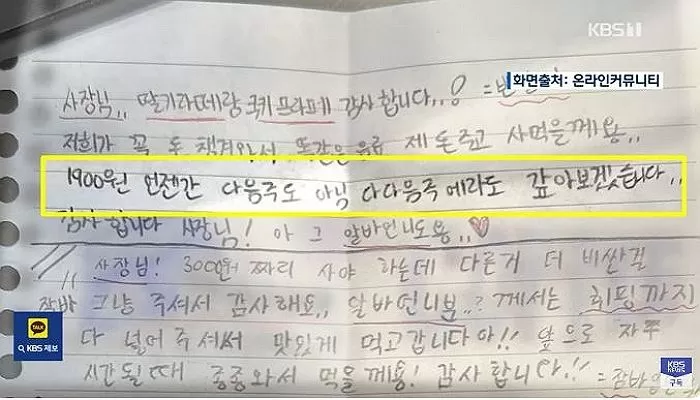 KBS 1
화면출처: 온라인커뮤니티
사장님,, 딸기라떼랑 쿠키프라페 감사합니다,,
저희가 꼭 돈 챙겨와서 똑같은 음료 제 돈주고 사먹을게용,,
1900원 언젠간 다음주도 아닌 다다음주에라도 갚아보겠습니다..
감사합니다 사장님! 아 그 알바언니도용,,♥
사장님! 3000원 짜리 사야 하는데 다른거 더 비싼걸
그냥 주셔서 감사해요,, 알바언니분..? 께서는 휘핑까지
다 넣어주셔써 맛있게 먹고갑니다아!! 앞으로 자주
시간될때 종종와서 먹을게용! 감사합니다!!
TALK
KBS 제보
KBS
NEWS
구독